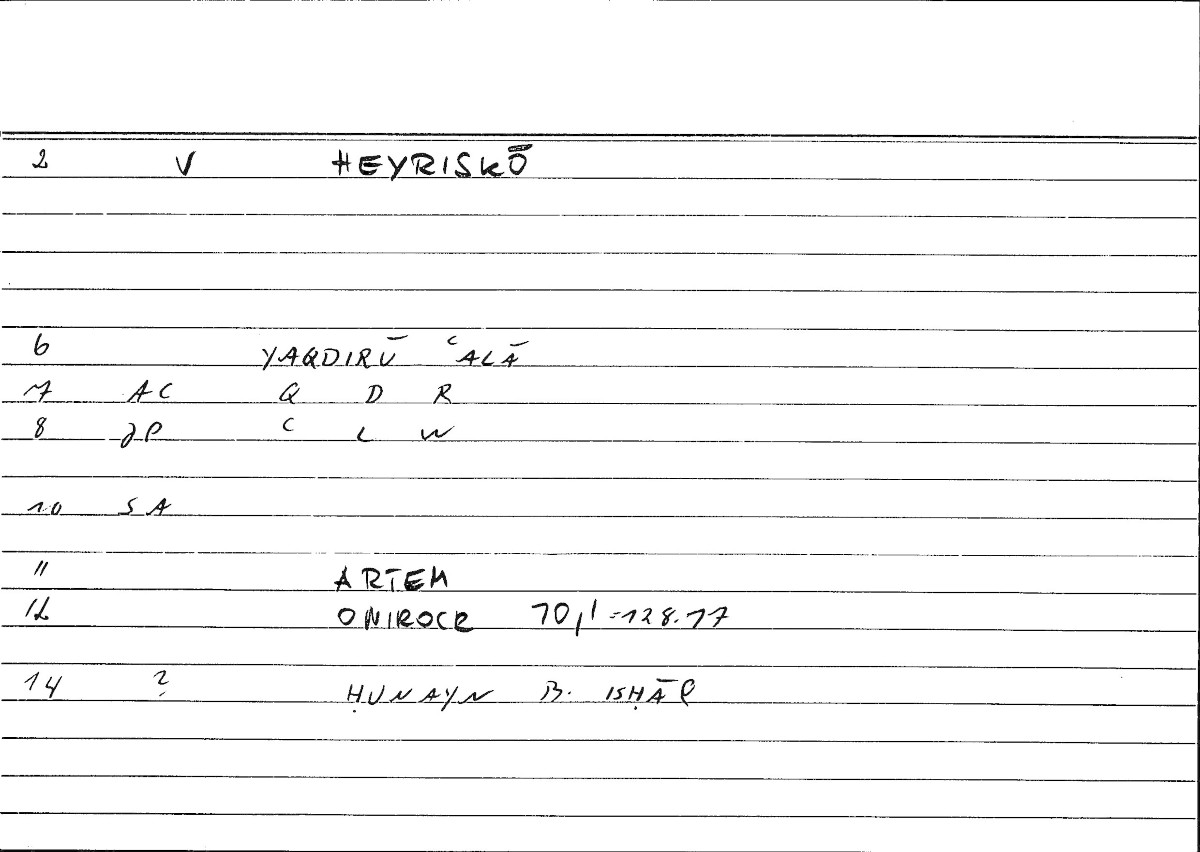 2 V HEYRISKŌ
6 YAQDIRŪ ʿALĀ
7 AC Q D R
8 ∂P ʿ L W
10 SA
11 ARTEM
12 ONIROCR 70,1 = 128.17
14 ? ḤUNAYN B. ISḤĀQ